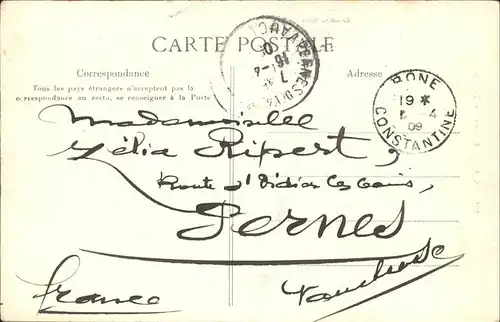 CARTE POSTALE
Correspondance
Adresse
Tous les pays étrangers n'acceptent pas la
correspondance au recto, se renseigner à la Poste
BONE
19 *
5 -4
09
CONSTANTINE
Mademoiselle
Zélia Ripert,
Route St Didier les bains,
Pernes
Vaucluse
France